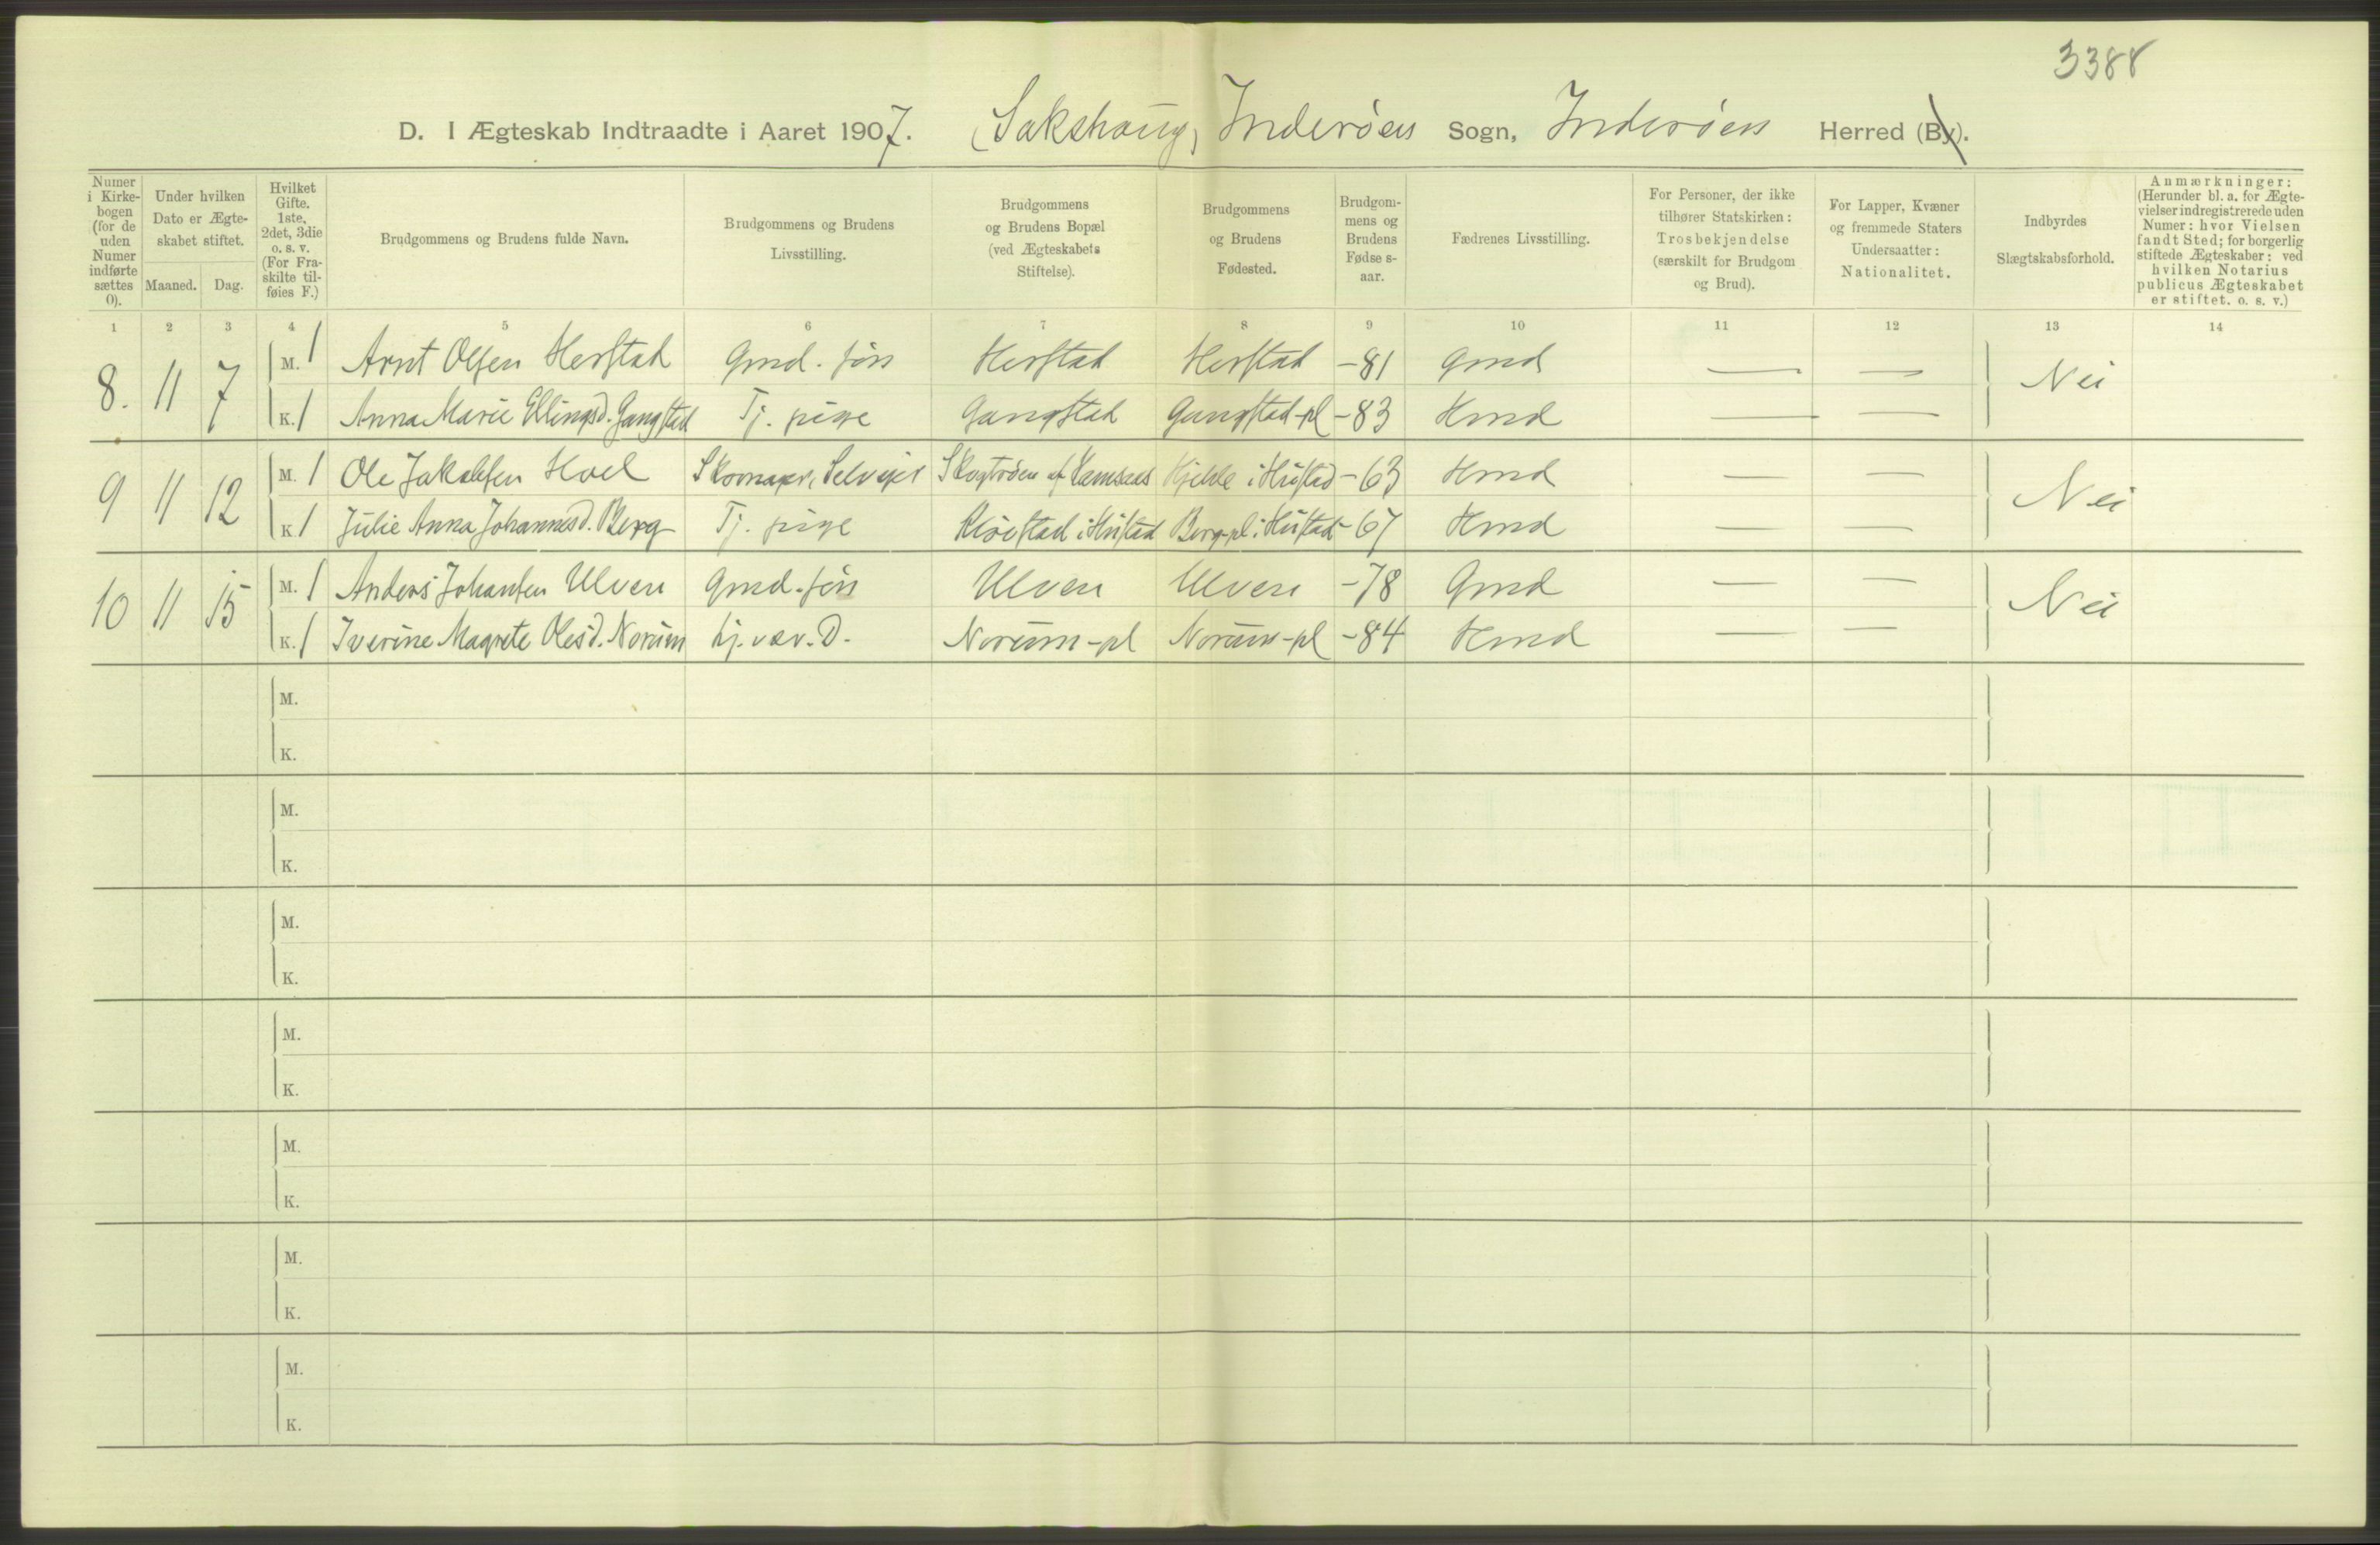 3388
D. I Ægteskab Indtraadte i Aaret 1907. (Sakshaug) Inderöen Sogn, Inderöen Herred (By).
Numer i Kirkebogen (for de uden Numer indførte sættes 0).
Under hvilken Dato er Ægteskabet stiftet.
Maaned. Dag.
Hvilket Gifte. 1ste, 2det, 3die o. s. v. (For Fraskilte tilføies F.)
Brudgommens og Brudens fulde Navn.
Brudgommens og Brudens Livsstilling.
Brudgommens og Brudens Bopæl (ved Ægteskabets Stiftelse).
Brudgommens og Brudens Fødested.
Brudgommens og Brudens Fødselsaar.
Fædrenes Livsstilling.
For Personer, der ikke tilhører Statskirken: Trosbekjendelse (særskilt for Brudgom og Brud).
For Lapper, Kvæner og fremmede Staters Undersaatter: Nationalitet.
Indbyrdes Slægtskabsforhold.
Anmærkninger: (Herunder bl. a. for Ægtevielser indregistrerede uden Numer: hvor Vielsen fandt Sted; for borgerlig stiftede Ægteskaber: ved hvilken Notarius publicus Ægteskabet er stiftet. o. s. v.)
1 2 3 4 5 6 7 8 9 10 11 12 13 14
8. 11 7 M. 1 Arnt Olsen Herstad Gmd. søn Herstad Herstad -81 Gmd — — Nei
K. 1 Anna Marie Ellingsd. Gangstad Tj. pige Gangstad Gangstad-pl -83 Hmd — —
9 11 12 M. 1 Ole Jakobsen Hoel Skomager, Selvejer af i Hustad -63 Hmd — — Nei
K. 1 Julie Anna Johannesd. Berg Tj. pige i Hustad Berg-pl i Hustad -67 Hmd — —
10 11 15 M. 1 Anders Johansen Ulven Gmd. søn Ulven Ulven -78 Gmd — — Nei
K. 1 Iverine Magrete Olesd. Norum hj. vær. D. Norum-pl Norum-pl -84 Hmd — —
M.
K.
M.
K.
M.
K.
M.
K.
M.
K.
M.
K.
M.
K.